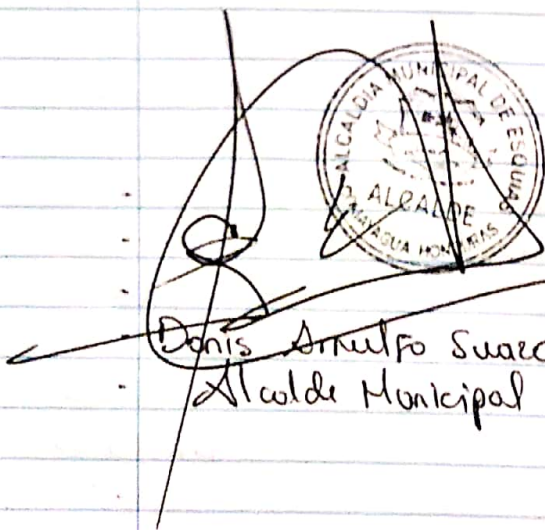 ALCALDIA MUNICIPAL DE ESQUIAS
ALCALDE
COMAYAGUA HONDURAS
Donis Arnulfo Suazo
Alcalde Municipal